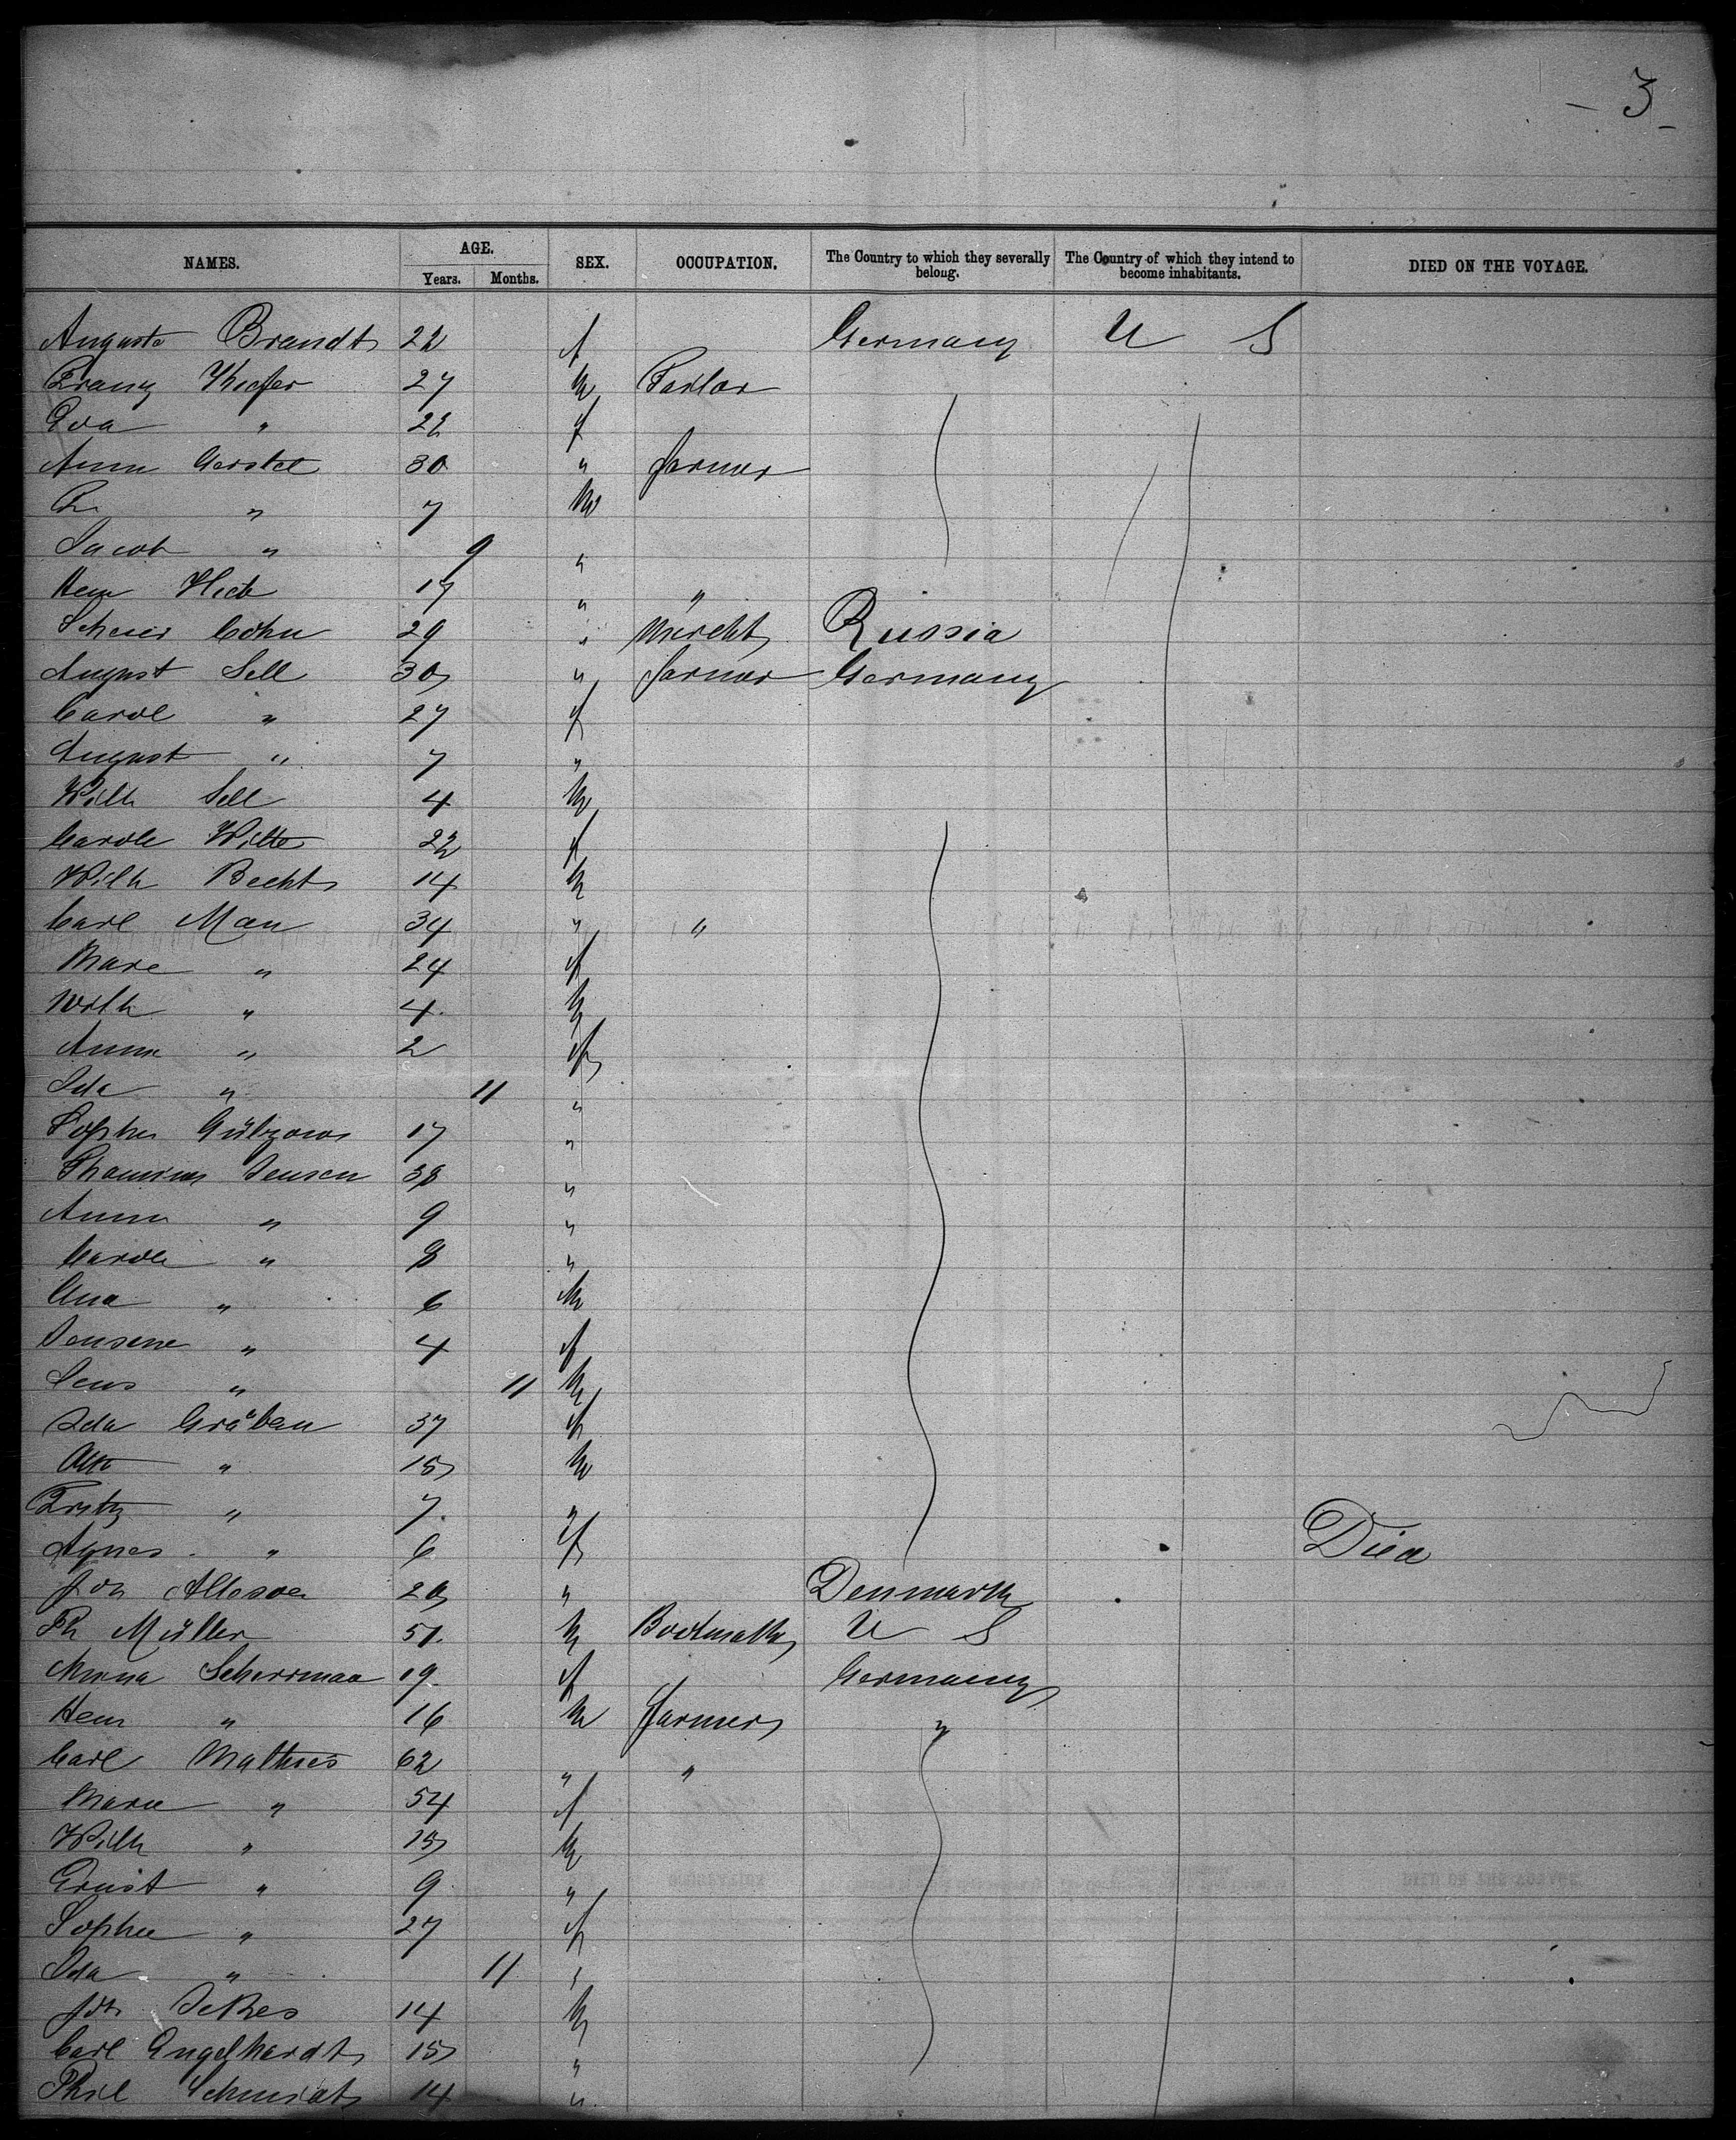 - 3 -
NAMES. AGE. Years. Months. SEX. OCCUPATION. The Country to which they severally belong. The Country of which they intend to become inhabitants. DIED ON THE VOYAGE.
Auguste Brandt 22 f Germany U S
Franz Kiefer 27 M Tailor
Eva " 22 f
Anna Gerstel 30 " farmer
" 7 M
Jacob " 9 "
Hein 17 " "
Cohn 29 " Mercht Russia
August Sell 30 " farmer Germany
Carol " 27 f
August " 7 "
Wilh Sell 4 M
Carole Witte 22 f
Wilh Becht 14 M
Carl Man 34 " "
Marie " 24 f
Wilh " 4 M
Anna " 2 f
Ida " 11 "
Sophie Gülzow 17 "
Jensen 38 "
Anna " 9 "
Carole " 8 "
" 6 M
Jensine " 4 f
Jens " 11 M
Ida Gräben 37 f
Otto " 15 M
Fritz " 7 "
Agnes " 6 f Died
Joh 20 " Denmark
Ph Müller 51 M U S
Minna Scherrmaa 19 f Germany
Hein " 16 M farmer "
Carl Mathies 62 " "
Marie " 54 f
Wilh " 15 M
Ernst " 9 "
Sophie " 27 f
Ida " 11 "
Joh 14 M
Carl Engelhardt 15 "
Phil Schmidt 14 "